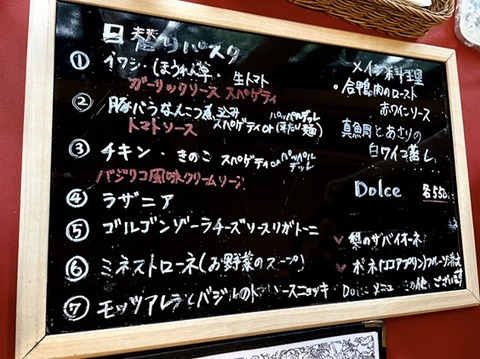 日替りパスタ
① イワシ・ほうれん草・生トマト
ガーリックソース スパゲティ
② 豚バラなんこつ煮込み
トマトソース スパゲティor パッパルデッレ(平たい麺)
③ チキン きのこ スパゲティor パッパルデッレ
バジリコ風味クリームソース
④ ラザニア
⑤ ゴルゴンゾーラチーズソースリガトーニ
⑥ ミネストローネ(お野菜のスープ)
⑦ モッツァレラとバジルのトマトソースニョッキ
メイン料理
・合鴨肉のロースト
赤ワインソース
真鯛とあさりの
白ワイン蒸し
Dolce 各550
✓ 梨のザバイオーネ
✓ ボネ(ココアプリン)フルーツ添え
Dolceメニュー この他ございます